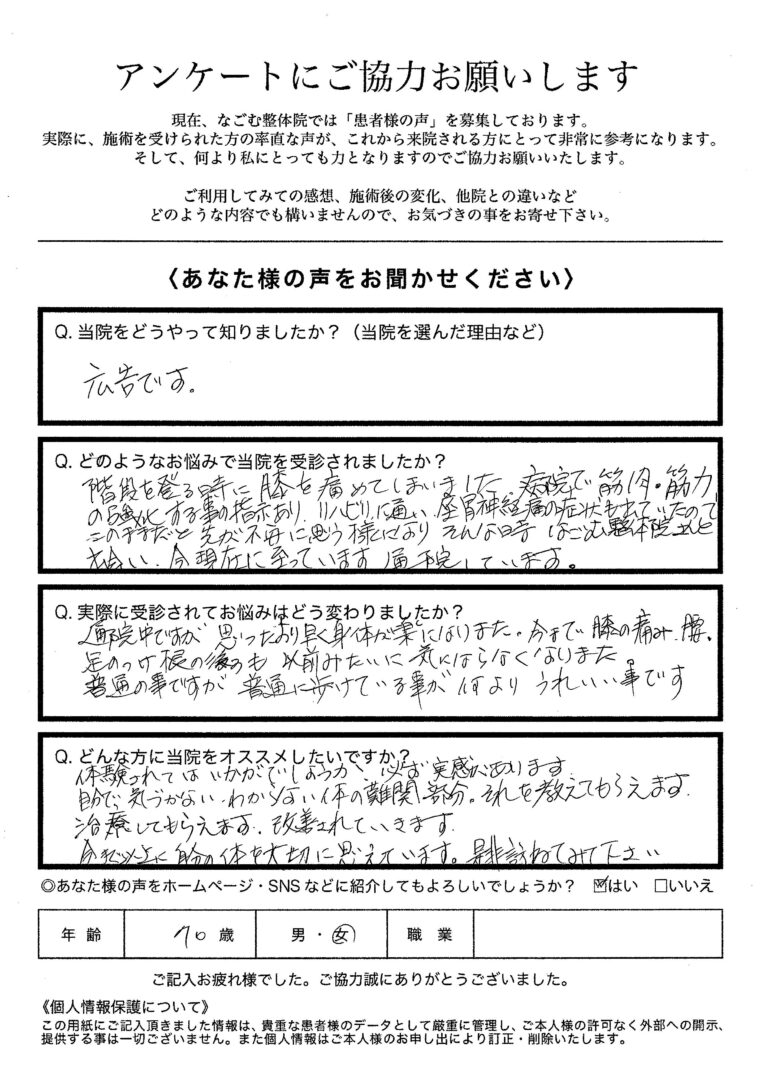 アンケートにご協力お願いします
現在、なごむ整体院では「患者様の声」を募集しております。
実際に、施術を受けられた方の率直な声が、これから来院される方にとって非常に参考になります。
そして、何より私にとっても力となりますのでご協力お願いいたします。
ご利用してみての感想、施術後の変化、他院との違いなど
どのような内容でも構いませんので、お気づきの事をお寄せ下さい。
〈あなた様の声をお聞かせください〉
Q. 当院をどうやって知りましたか？（当院を選んだ理由など）
広告です。
Q. どのようなお悩みで当院を受診されましたか？
階段を登る時に膝を痛めてしまいました 病院で筋肉・筋力
の強化する事の指示あり、リハビリに通い、坐骨神経痛の症状も出ていたので
このままだと先が不安に思う様になり そんな時 なごむ整体院さんと
出会い、今現在に至っています 通院しています。
Q. 実際に受診されてお悩みはどう変わりましたか？
通院中ですが 思ったより早く身体が楽になりました。今まで膝の痛み、腰、
足のつけ根の後ろも 以前みたいに気にならなくなりました。
普通の事ですが 普通に歩けている事が何より うれしい事です
Q. どんな方に当院をオススメしたいですか？
体験されてはいかがでしょうか 必ず実感があります
自分で気づかない、わからない体の難関部分。それを教えてもらえます。
治療してもらえます。改善されていきます。
今まで以上に自分の体を大切に思えています。是非訪ねてみて下さい
◎あなた様の声をホームページ・SNSなどに紹介してもよろしいでしょうか？ ☑はい □いいえ
年齢 70歳 男・女 職業
ご記入お疲れ様でした。ご協力誠にありがとうございました。
《個人情報保護について》
この用紙にご記入頂きました情報は、貴重な患者様のデータとして厳重に管理し、ご本人様の許可なく外部への開示、
提供する事は一切ございません。また個人情報はご本人様のお申し出により訂正・削除いたします。